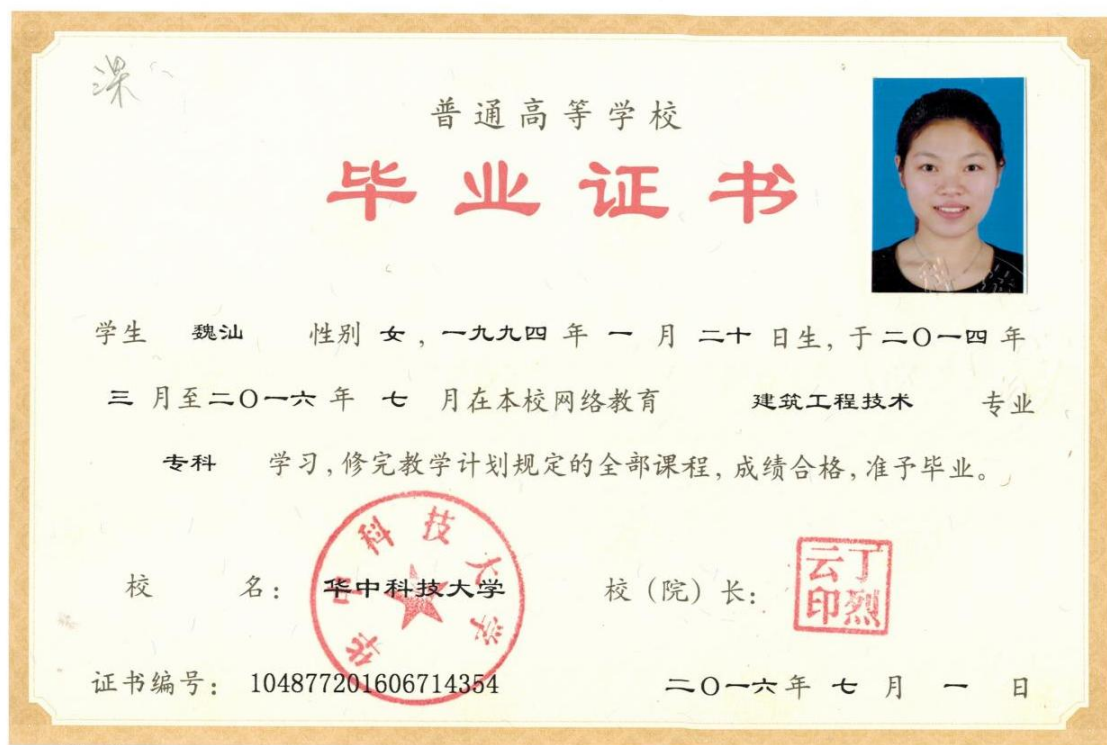 深
普通高等学校
毕业证书
学生 魏汕 性别 女，一九九四 年 一 月 二十 日生，于二〇一四年
三 月至二〇一六 年 七 月在本校网络教育 建筑工程技术 专业
专科 学习，修完教学计划规定的全部课程，成绩合格，准予毕业。
华中科技大学
校 名： 华中科技大学 校（院）长： 丁烈云印
证书编号： 104877201606714354 二〇一六年 七 月 一 日